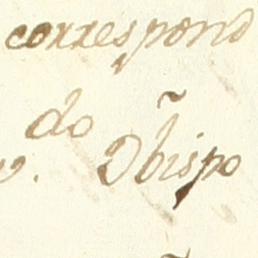 correspond
do
Obispo